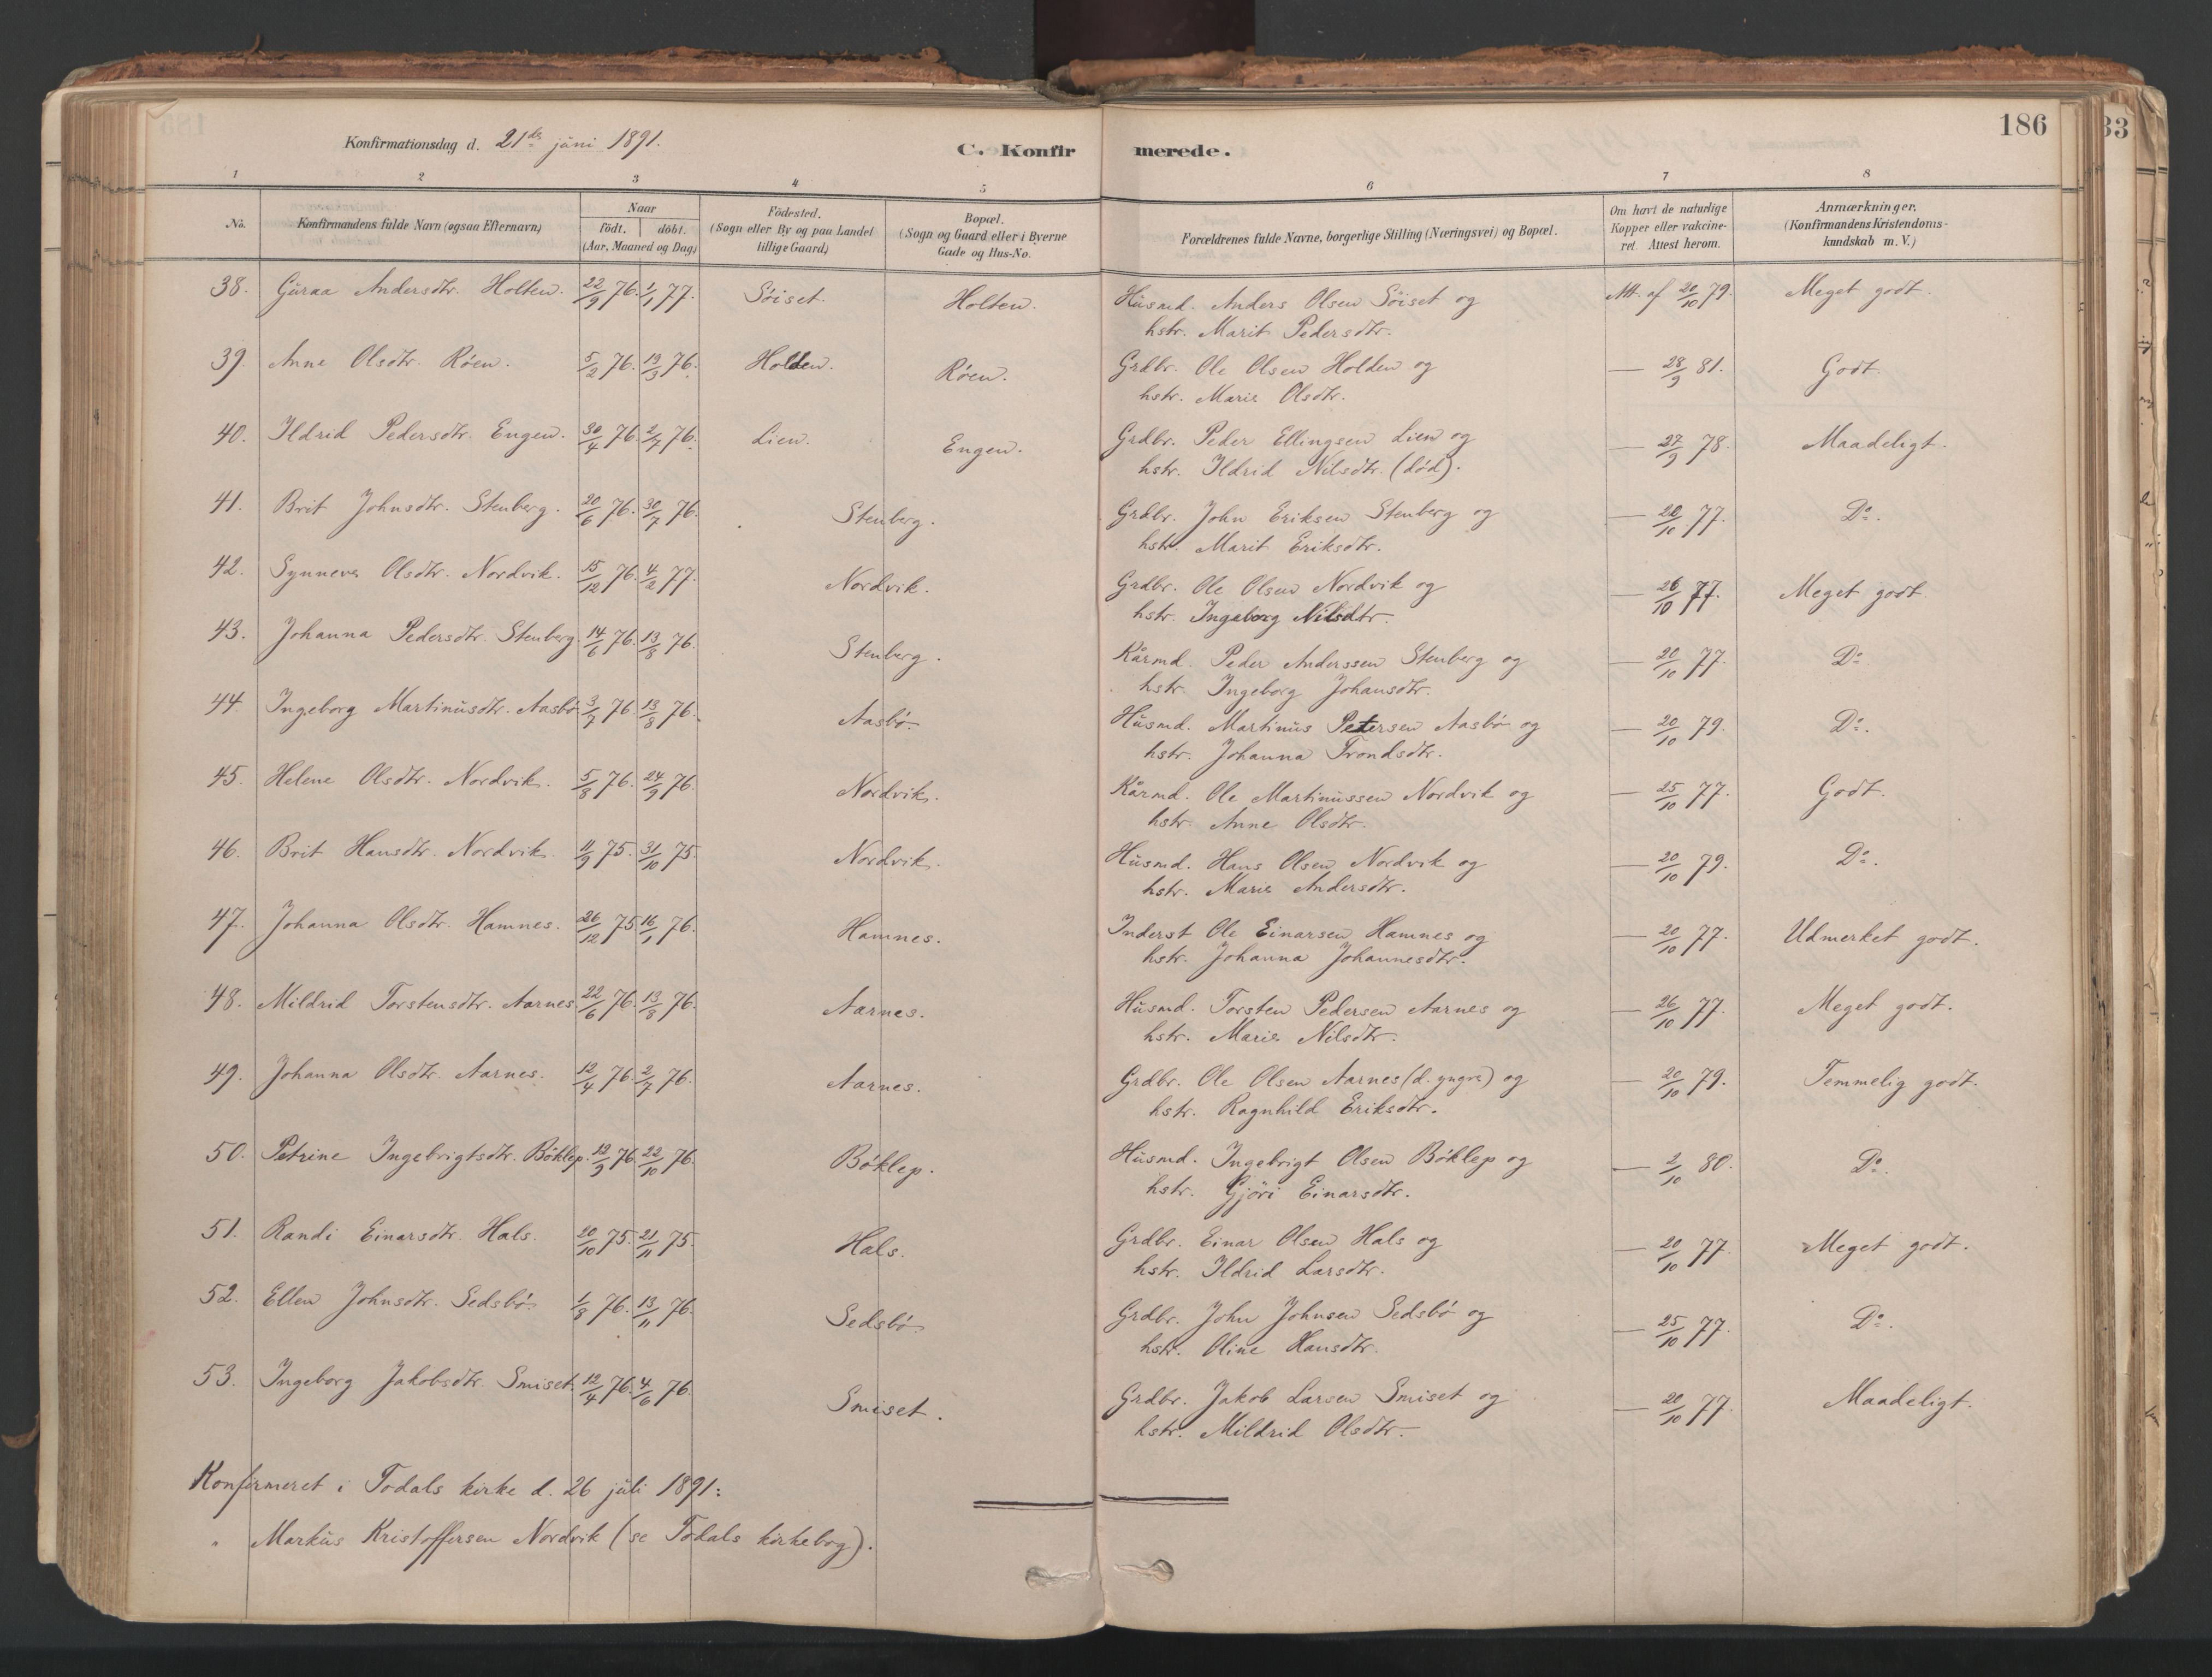 186
33
Konfirmationsdag d. 21de juni 1891.
C. Konfirmerede.
1 2 3 4 5 6 7 8
No. Konfirmandens fulde Navn (ogsaa Efternavn) Naar født. døbt. (Aar, Maaned og Dag) Fødested. (Sogn eller By og paa Landet tillige Gaard) Bopæl. (Sogn og Gaard eller i Byerne Gade og Hus-No. Forældrenes fulde Navne, borgerlige Stilling (Næringsvei) og Bopæl. Om havt de naturlige Kopper eller vakcineret. Attest herom. Anmærkninger. (Konfirmandens Kristendomskundskab m. V.)
38. Guraa Andersdtr. Holten. 22/9 76. 1/1 77. Söiset. Holten. Husmd. Anders Olsen Söiset og Att. af 20/10 79. Meget godt.
hstr. Marit Pedersdtr.
39. Anne Olsdtr. Röen. 5/2 76. 19/3 76. Holden. Röen. Grdbr. Ole Olsen Holden og — 28/9 81. Godt.
hstr. Marie Olsdtr.
40. Ildrid Pedersdtr. Engen. 30/4 76. 2/7 76. Lien. Engen. Grdbr. Peder Ellingsen Lien og — 27/9 78. Maadeligt.
hstr. Ildrid Nilsdtr. (död).
41. Brit Johnsdtr. Stenberg. 20/6 76. 30/7 76. Stenberg. Grdbr. John Eriksen Stenberg og — 20/10 77. Do.
hstr. Marit Eriksdtr.
42. Synneve Olsdtr. Nordvik. 15/12 76. 4/2 77. Nordvik. Grdbr. Ole Olsen Nordvik og — 26/10 77. Meget godt.
hstr. Ingeborg Nilsdtr.
43. Johanna Pedersdtr. Stenberg. 14/6 76. 13/8 76. Stenberg. Kårmd. Peder Anderssen Stenberg og — 20/10 77. Do.
hstr. Ingeborg Johansdtr.
44. Ingeborg Martinusdtr. Aasbö 3/7 76. 13/8 76. Aasbö. Husmd. Martinus Petersen Aasbö og — 20/10 79. Do.
hstr. Johanna Trondsdtr.
45. Helene Olsdtr. Nordvik. 5/8 76. 24/9 76. Nordvik. Kårmd. Ole Martinussen Nordvik og — 25/10 77. Godt.
hstr. Anne Olsdtr.
46. Brit Hansdtr. Nordvik. 11/9 75. 31/10 75. Nordvik. Husmd. Hans Olsen Nordvik og — 20/10 79. Do.
hstr. Marie Andersdtr.
47. Johanna Olsdtr. Hamnes. 26/12 75. 16/1 76. Hamnes. Inderst Ole Einarsen Hamnes og — 20/10 77. Udmerket godt.
hstr. Johanna Johannesdtr.
48. Mildrid Torstensdtr. Aarnes. 22/6 76. 13/8 76. Aarnes. Husmd. Torsten Pedersen Aarnes og — 26/10 77. Meget godt.
hstr. Marie Nilsdtr.
49. Johanna Olsdtr. Aarnes. 12/4 76. 2/7 76. Aarnes. Grdbr. Ole Olsen Aarnes (d. yngre) og — 20/10 79. Temmelig godt.
hstr. Ragnhild Eriksdtr.
50. Petrine Ingebrigtsdtr. Böklep. 12/9 76. 22/10 76. Böklep. Husmd. Ingebrigt Olsen Böklep og — 2/10 80. Do.
hstr. Gjöri Einarsdtr.
51. Randi Einarsdtr. Hals. 20/10 75. 21/11 75. Hals. Grdbr. Einar Olsen Hals og — 20/10 77. Meget godt.
hstr. Ildrid Larsdtr.
52. Ellen Johnsdtr. Sedsbö. 1/8 76. 13/11 76. Sedsbö. Grdbr. John Johnsen Sedsbö og — 25/10 77. Do.
hstr. Oline Hansdtr.
53. Ingeborg Jakobsdtr. Smiset. 12/4 76. 4/6 76. Smiset. Grdbr. Jakob Larsen Smiset og — 20/10 77. Maadeligt.
hstr. Mildrid Olsdtr.
Konfirmeret i Todals kirke d. 26 juli 1891:
" Markus Kristoffersen Nordvik (se Todals kirkebog).